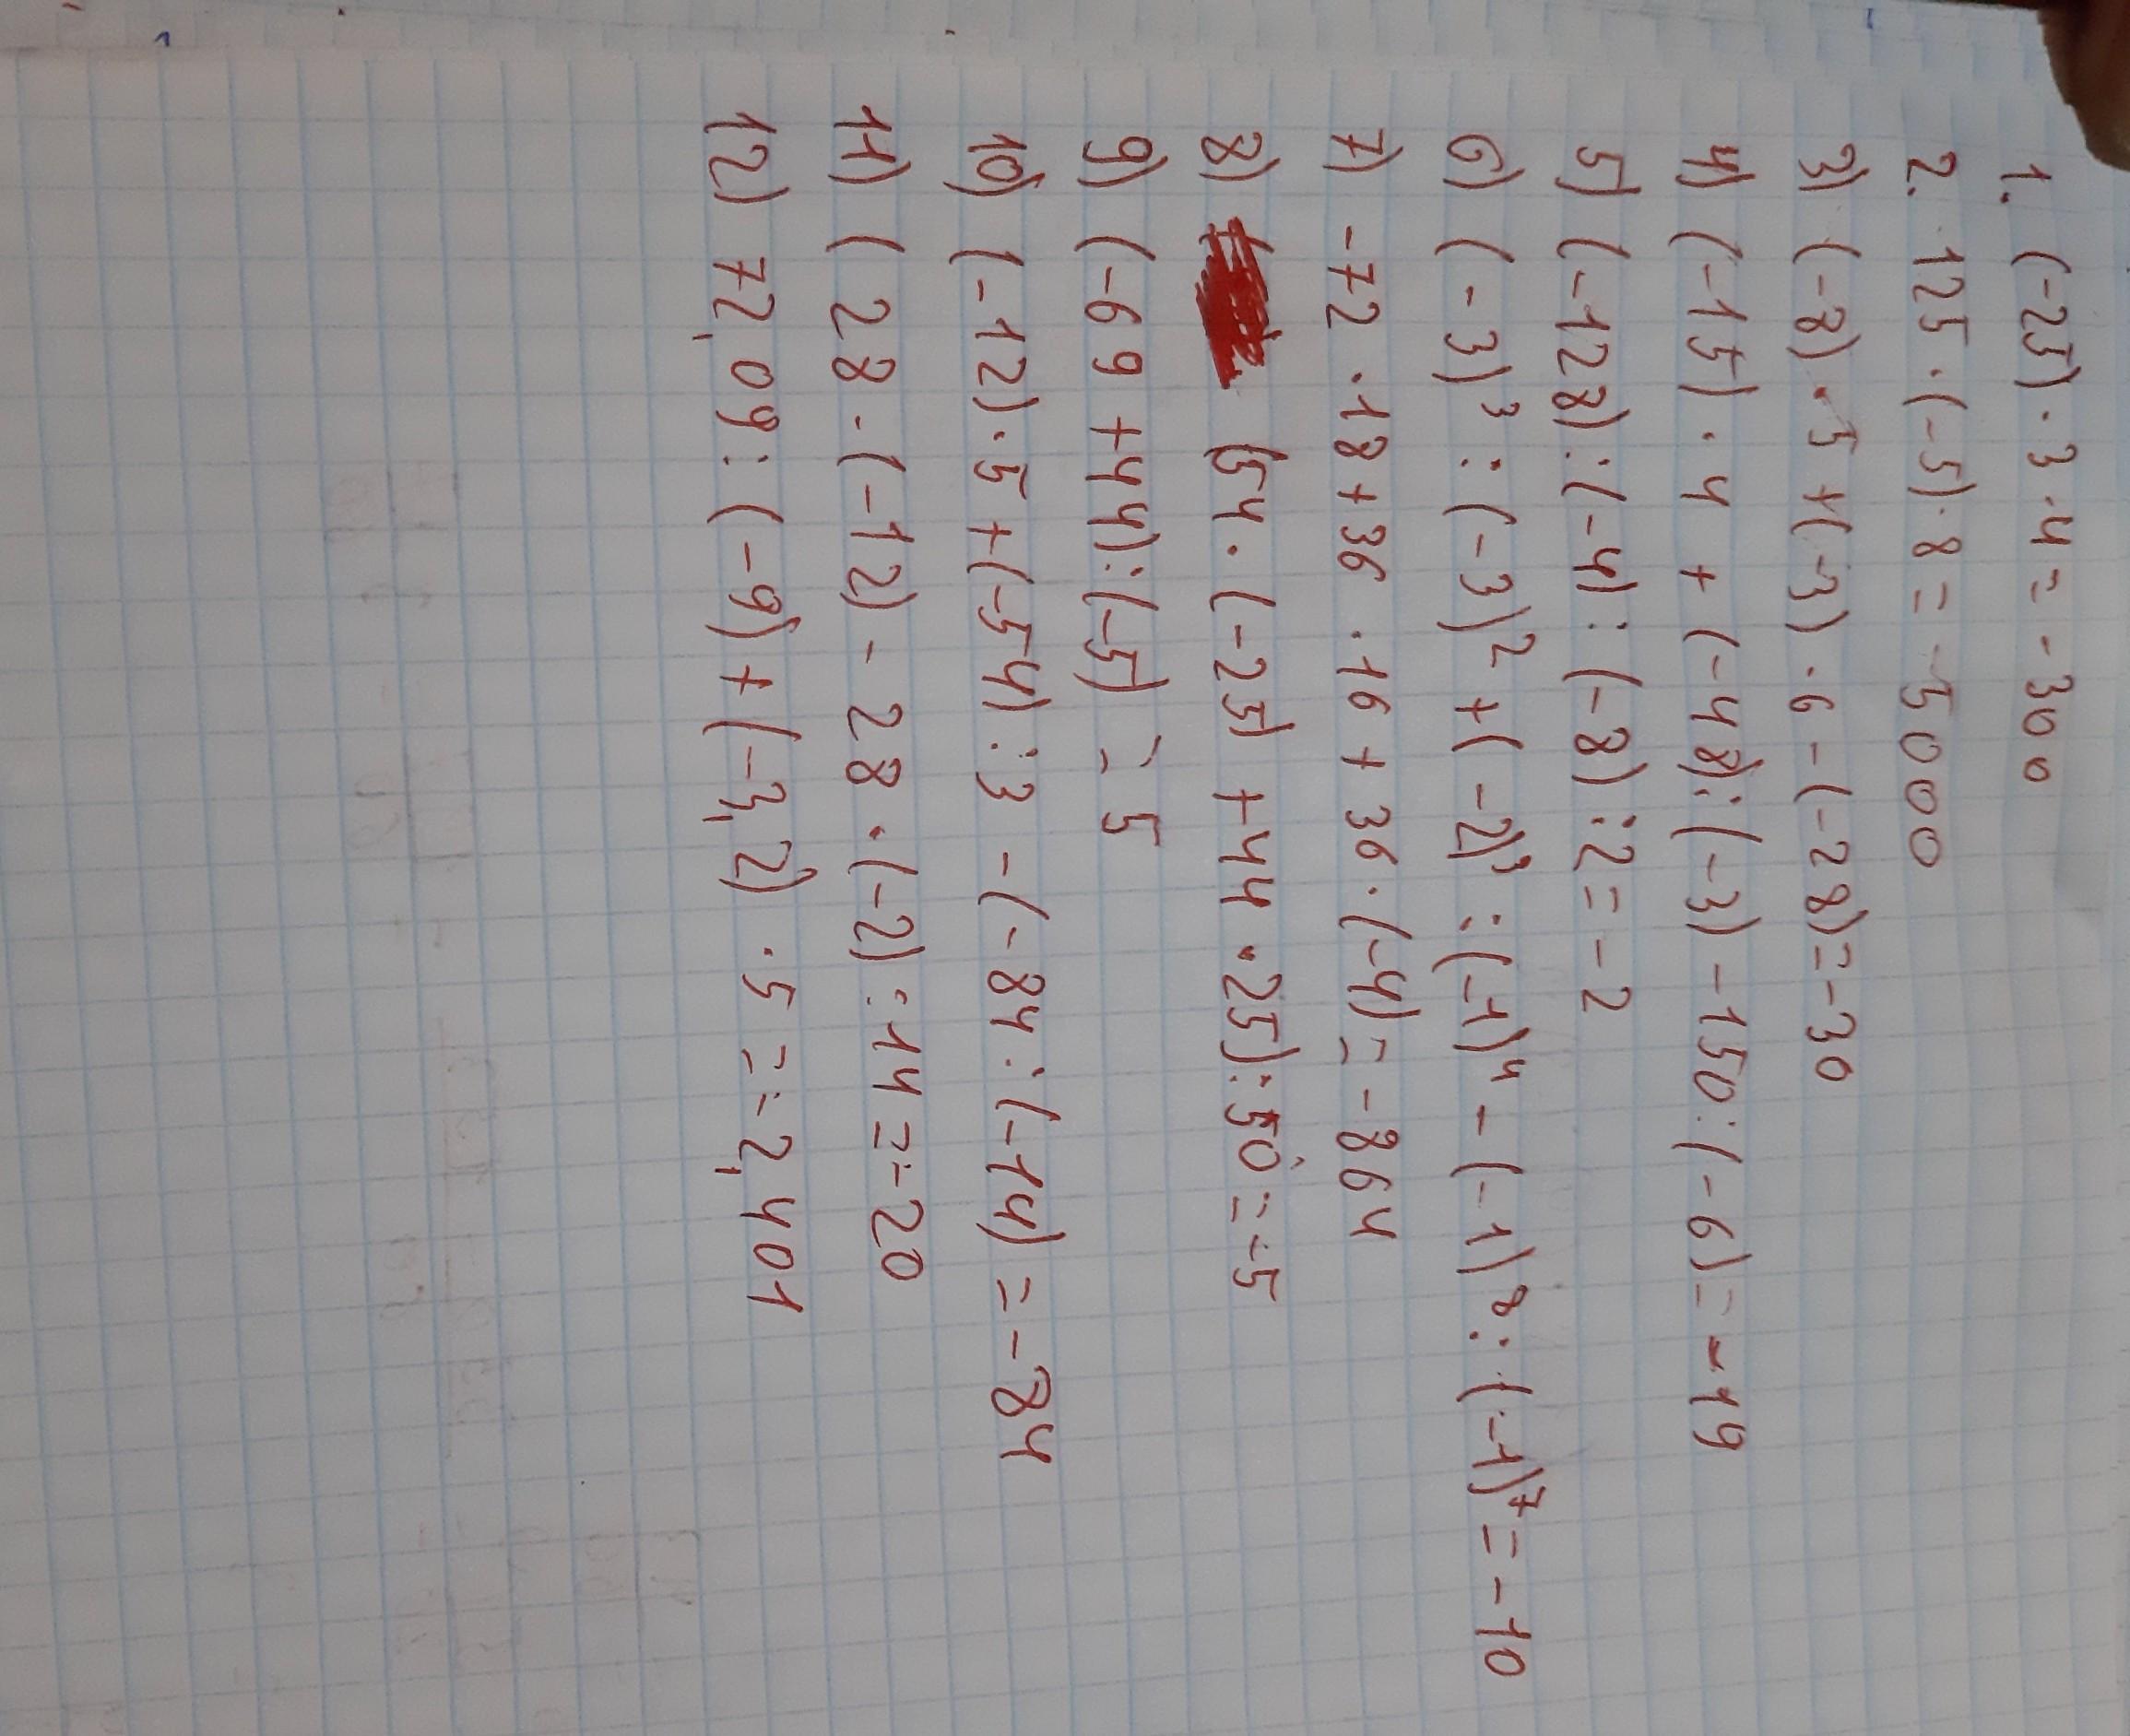 1. (-25) · 3 · 4 = -300
2. 125 · (-5) · 8 = -5000
3) (-8) · 5 + (-3) · 6 - (-28) = -30
4) (-15) · 4 + (-48) : (-3) - 150 : (-6) = -19
5) (-128) : (-4) : (-8) : 2 = -2
6) (-3)³ : (-3)² + (-2)³ : (-1)⁴ - (-1)⁸ : (-1)⁷ = -10
7) -72 · 18 + 36 · 16 + 36 · (-4) = -864
8) (54 · (-25) + 44 · 25) : 50 = -5
9) (-69 + 44) : (-5) = 5
10) (-12) · 5 + (-54) : 3 - (-84 : (-14) = -84
11) (28 · (-12) - 28 · (-2) : 14 = -20
12) 72,09 : (-9) + (-3,2) · 5 = -2,401